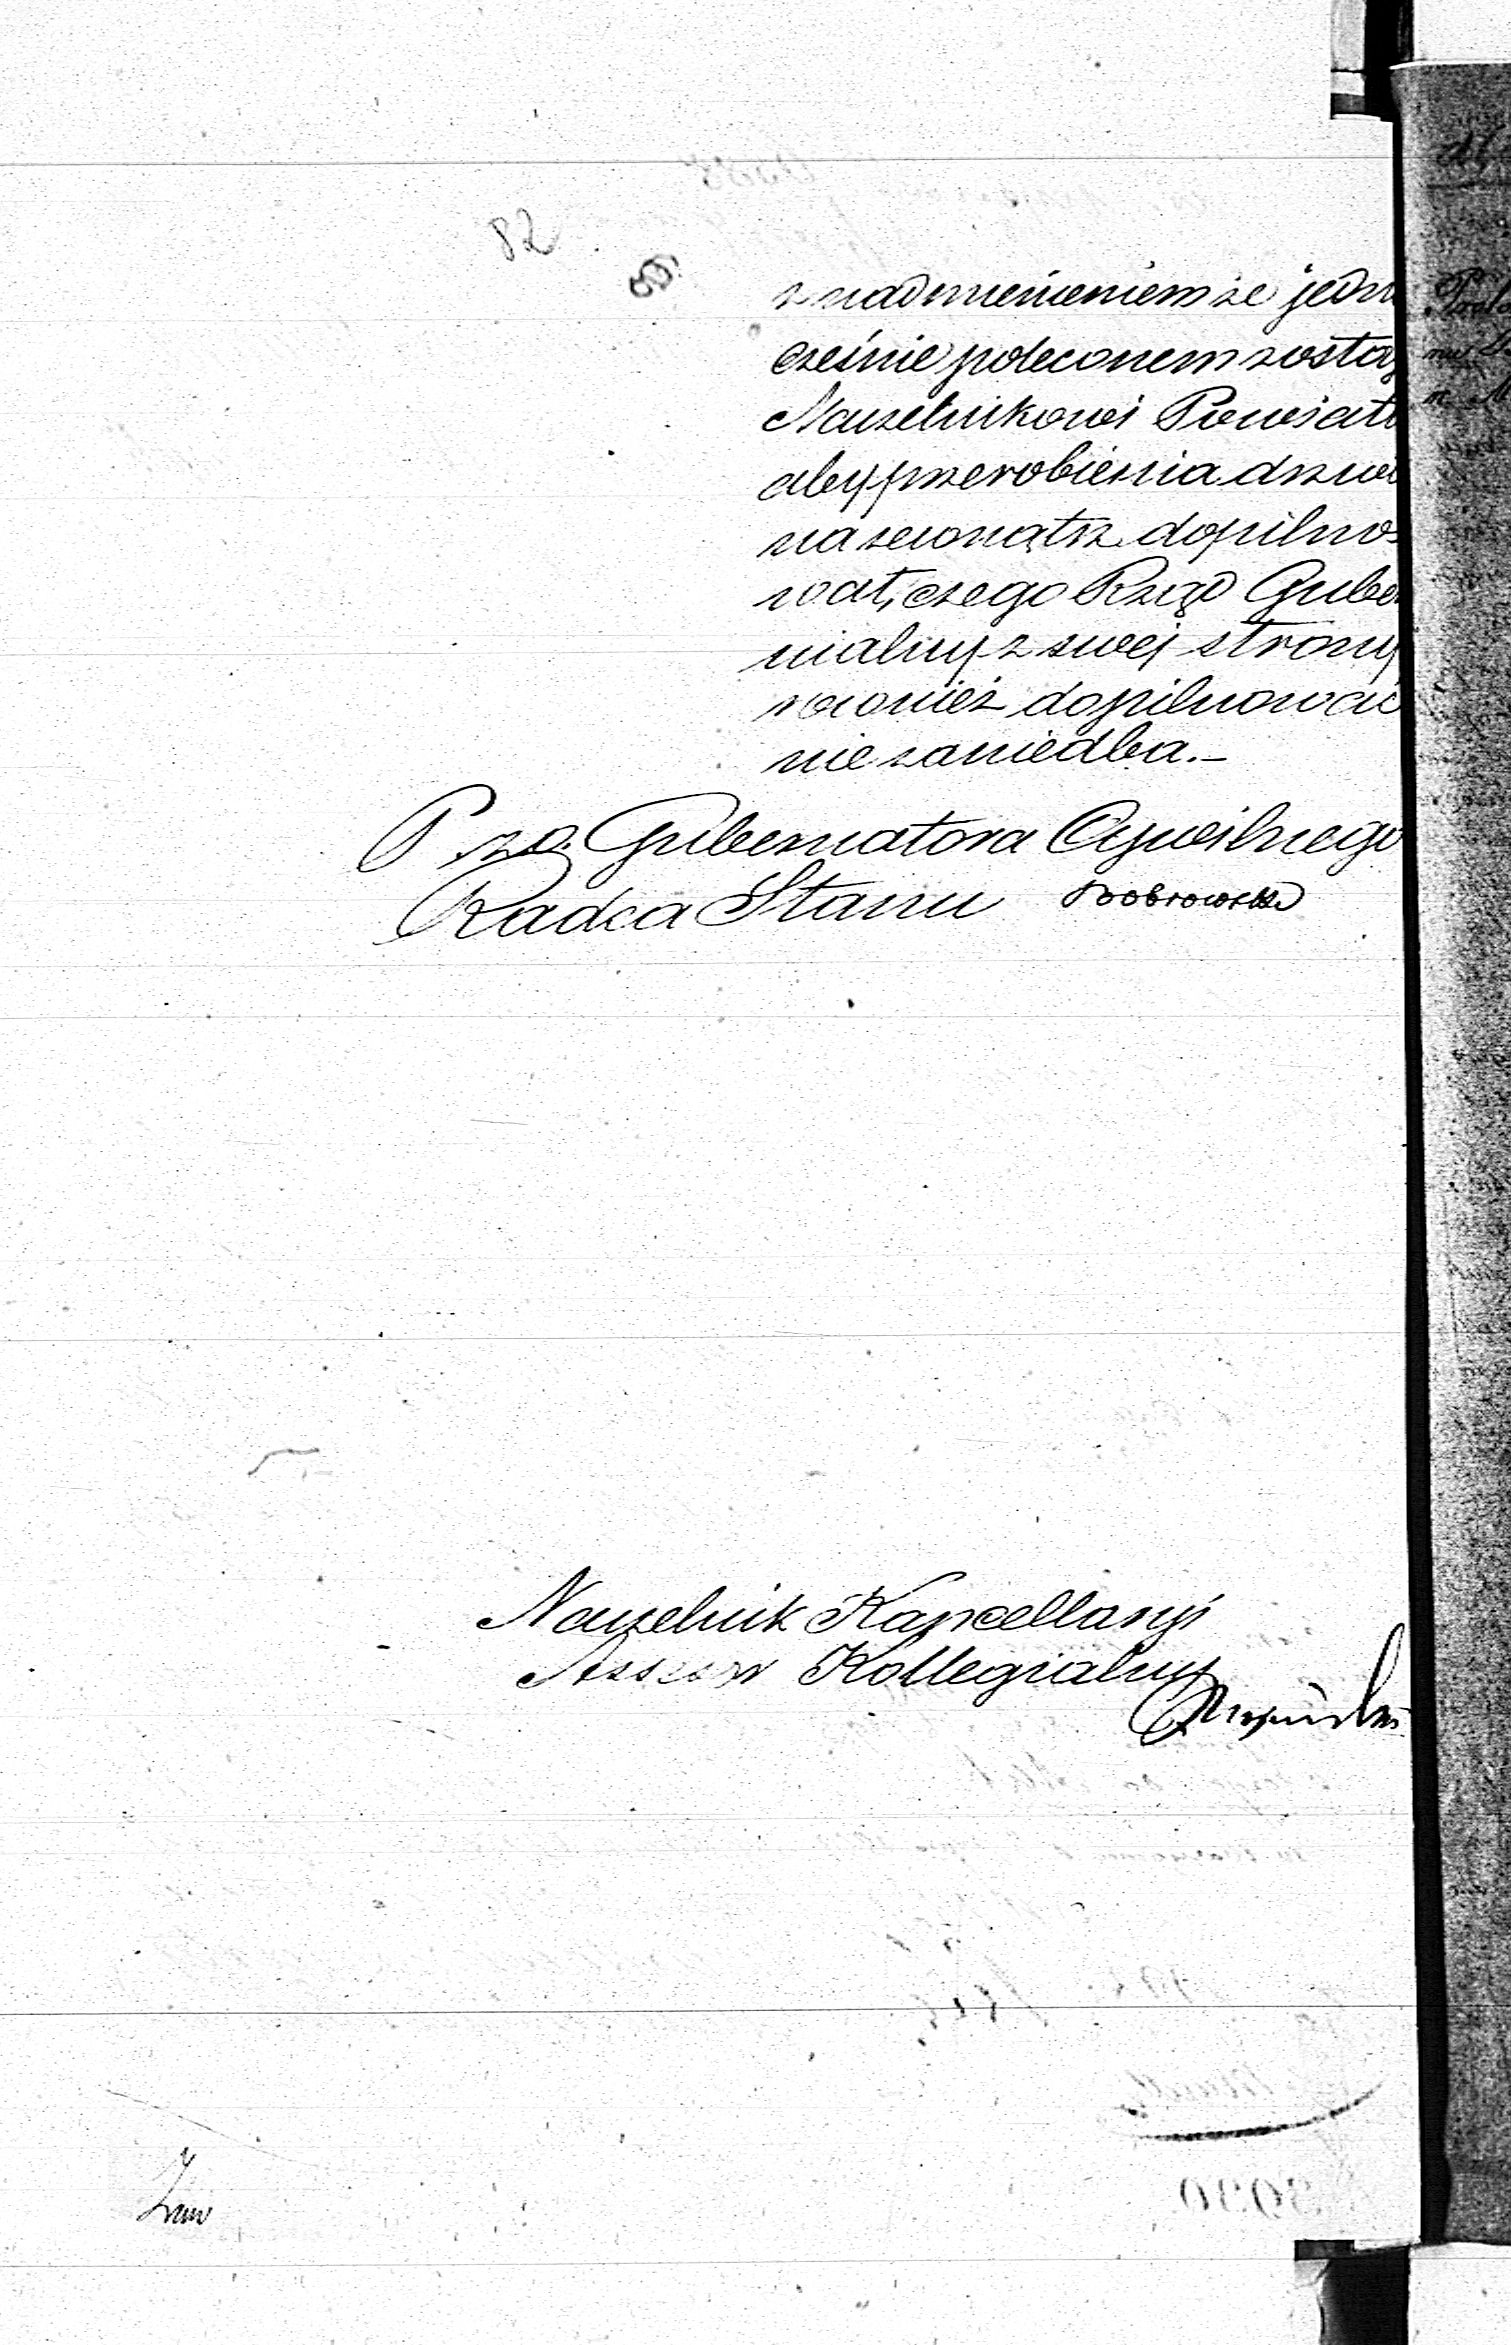 82
z nadmienieniem że jedno
cześnie poleconem zostaj
Naczelnikowi Powiatu
aby przerobienia drzwi
na zewnątrz dopilno-
wał, czego Rząd Guber
nialny z swej strony
również dopilnować
nie zaniedba.-
P. zo. Gubernatora Cywilnego
Radca Stanu Bobrowski
Naczelnik Kancellaryi
Assessor Kollegialny